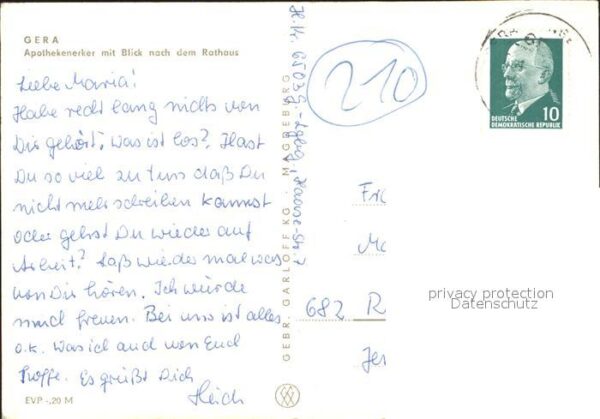 GERA
Apothekenerker mit Blick nach dem Rathaus
Liebe Maria!
Habe recht lang nichts von
Dir gehört, was ist los? Hast
Du so viel zu tun, daß Du
nicht mehr schreiben kannst
oder gehst Du wieder auf
Arbeit? Laß wieder mal was
von Dir hören. Ich würde
mich freuen. Bei uns ist alles
o.k. Was ich auch von Euch
hoffe. Es grüßt Dich
EVP -,20 M
GEBR. GARLOFF KG · MAGDEBURG
210
DEUTSCHE
DEMOKRATISCHE REPUBLIK
10
682 R
privacy protection
Datenschutz